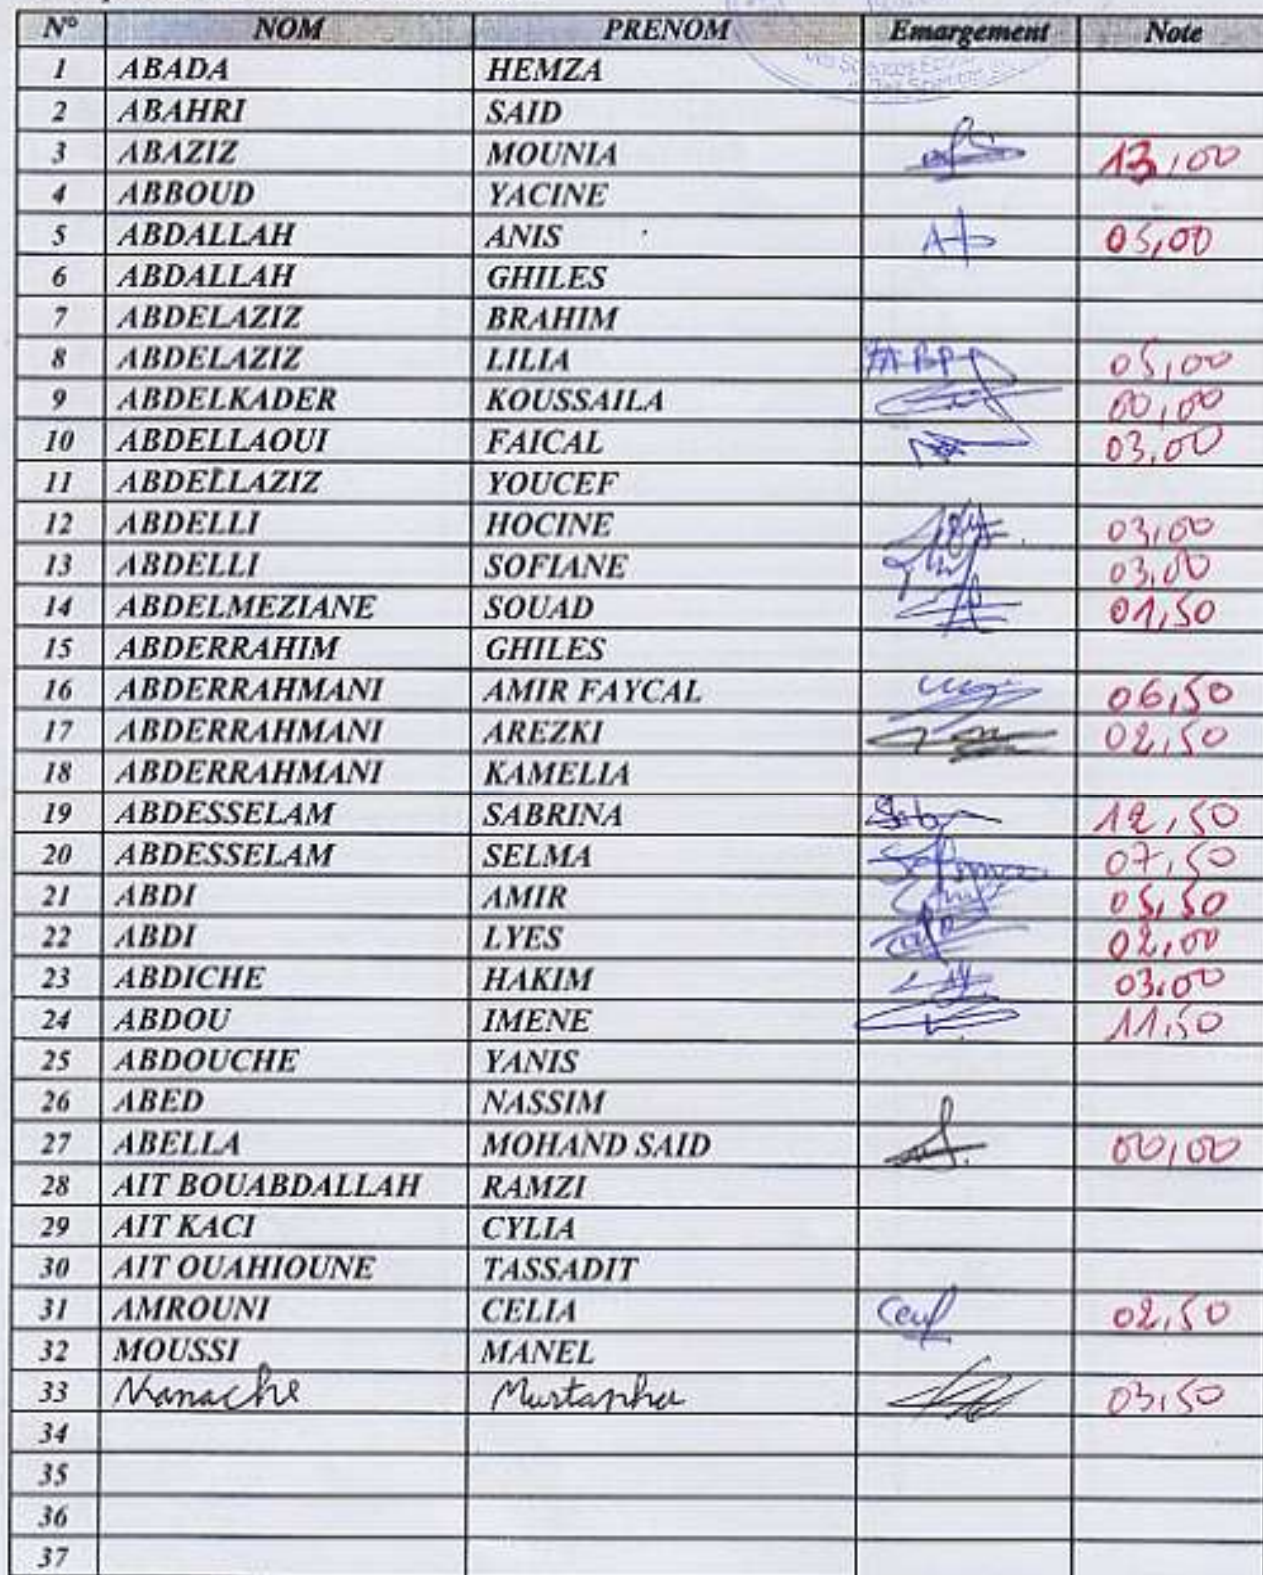 N° NOM PRENOM Emargement Note
1 ABADA HEMZA
2 ABAHRI SAID
3 ABAZIZ MOUNIA 13,00
4 ABBOUD YACINE
5 ABDALLAH ANIS 05,00
6 ABDALLAH GHILES
7 ABDELAZIZ BRAHIM
8 ABDELAZIZ LILIA 05,00
9 ABDELKADER KOUSSAILA 00,00
10 ABDELLAOUI FAICAL 03,00
11 ABDELLAZIZ YOUCEF
12 ABDELLI HOCINE 03,00
13 ABDELLI SOFIANE 03,00
14 ABDELMEZIANE SOUAD 01,50
15 ABDERRAHIM GHILES
16 ABDERRAHMANI AMIR FAYCAL 06,50
17 ABDERRAHMANI AREZKI 02,50
18 ABDERRAHMANI KAMELIA
19 ABDESSELAM SABRINA 12,50
20 ABDESSELAM SELMA 07,50
21 ABDI AMIR 05,50
22 ABDI LYES 02,00
23 ABDICHE HAKIM 03,00
24 ABDOU IMENE 11,50
25 ABDOUCHE YANIS
26 ABED NASSIM
27 ABELLA MOHAND SAID 00,00
28 AIT BOUABDALLAH RAMZI
29 AIT KACI CYLIA
30 AIT OUAHIOUNE TASSADIT
31 AMROUNI CELIA 02,50
32 MOUSSI MANEL
33 Mustapha 03,50
34
35
36
37